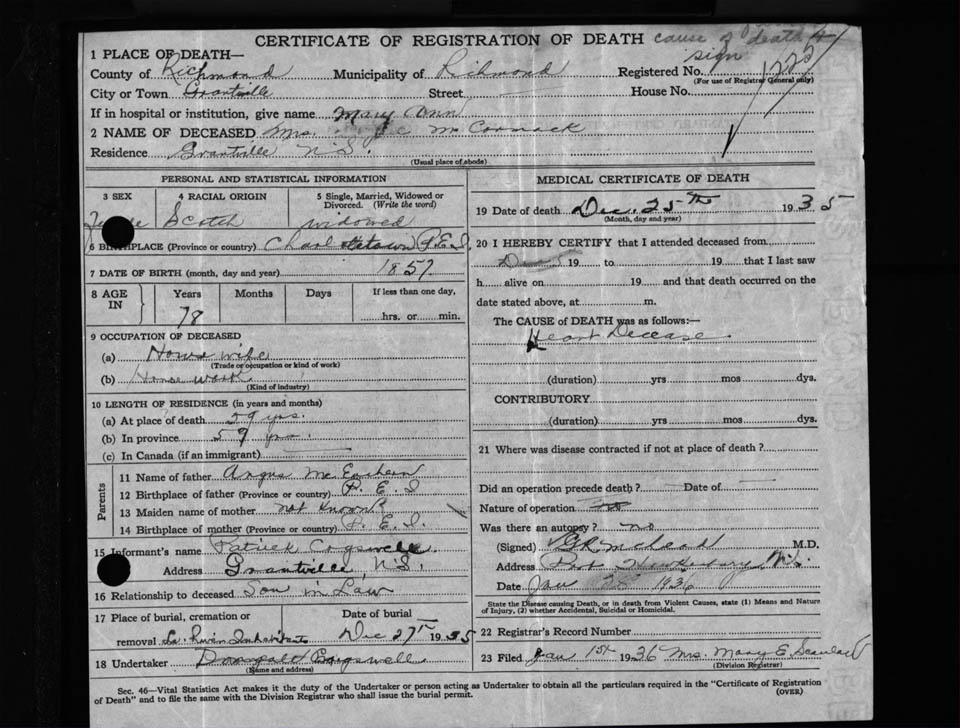 CERTIFICATE OF REGISTRATION OF DEATH cause of death &
sign
1 PLACE OF DEATH—
County of Richmond Municipality of Richmond Registered No. 1225
(For use of Registrar General only)
City or Town Grantville Street House No.
If in hospital or institution, give name Mary Ann
2 NAME OF DECEASED Mrs. McCormack
Residence Grantville N.S.
(Usual place of abode)
PERSONAL AND STATISTICAL INFORMATION
3 SEX 4 RACIAL ORIGIN 5 Single, Married, Widowed or Divorced. (Write the word)
Scotch widowed
6 BIRTHPLACE (Province or country) Charlottetown P.E.I.
7 DATE OF BIRTH (month, day and year) 1857
8 AGE IN Years Months Days If less than one day,
78 hrs. or min.
9 OCCUPATION OF DECEASED
(a) House wife
(Trade or occupation or kind of work)
(b) House work
(Kind of industry)
10 LENGTH OF RESIDENCE (in years and months)
(a) At place of death 59 yrs.
(b) In province 59 yrs.
(c) In Canada (if an immigrant)
Parents
11 Name of father Angus McEachern
12 Birthplace of father (Province or country) P.E.I
13 Maiden name of mother not known
14 Birthplace of mother (Province or country) P.E.I.
15 Informant's name Patrick Cogswell
Address Grantville, N.S.
16 Relationship to deceased Son in Law
17 Place of burial, cremation or removal Date of burial
River Inhabitants Dec 27th 1935
18 Undertaker Cogswell
(Name and address)
MEDICAL CERTIFICATE OF DEATH
19 Date of death Dec. 25th 1935
(Month, day and year)
20 I HEREBY CERTIFY that I attended deceased from
Dec 5 19 to 19 that I last saw
h alive on 19 and that death occurred on the
date stated above, at m.
The CAUSE of DEATH was as follows:—
Heart Decease
(duration) yrs mos dys.
CONTRIBUTORY
(duration) yrs mos dys.
21 Where was disease contracted if not at place of death?
Did an operation precede death? Date of
Nature of operation
Was there an autopsy? no
(Signed) McLeod M.D.
Address Port Hawkesbury, N.S.
Date Jan 28 1936
State the Disease causing Death, or in death from Violent Causes, state (1) Means and Nature
of Injury, (2) whether Accidental, Suicidal or Homicidal.
22 Registrar's Record Number
23 Filed Jan 1st 1936 Mrs. Mary E.
(Division Registrar)
Sec. 46—Vital Statistics Act makes it the duty of the Undertaker or person acting as Undertaker to obtain all the particulars required in the "Certificate of Registration
of Death" and to file the same with the Division Registrar who shall issue the burial permit. (OVER)